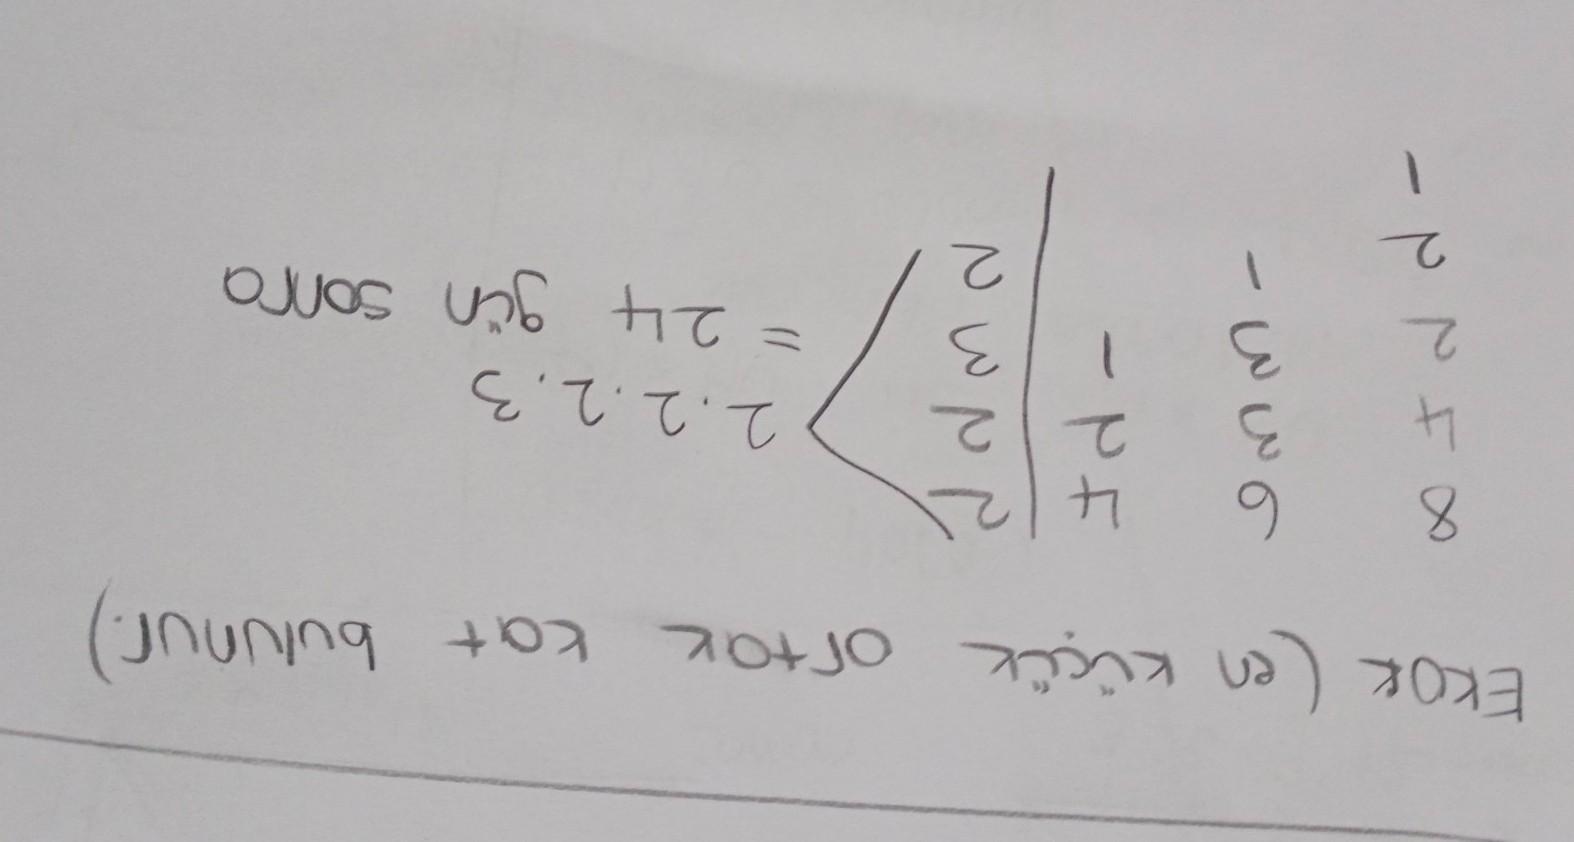 EKOK (en küçük ortak kat bulunur.)
8 6 4 | 2
4 3 2 | 2 2.2.2.3
2 3 1 | 3 = 24 gün sonra
2 1 | 2
1